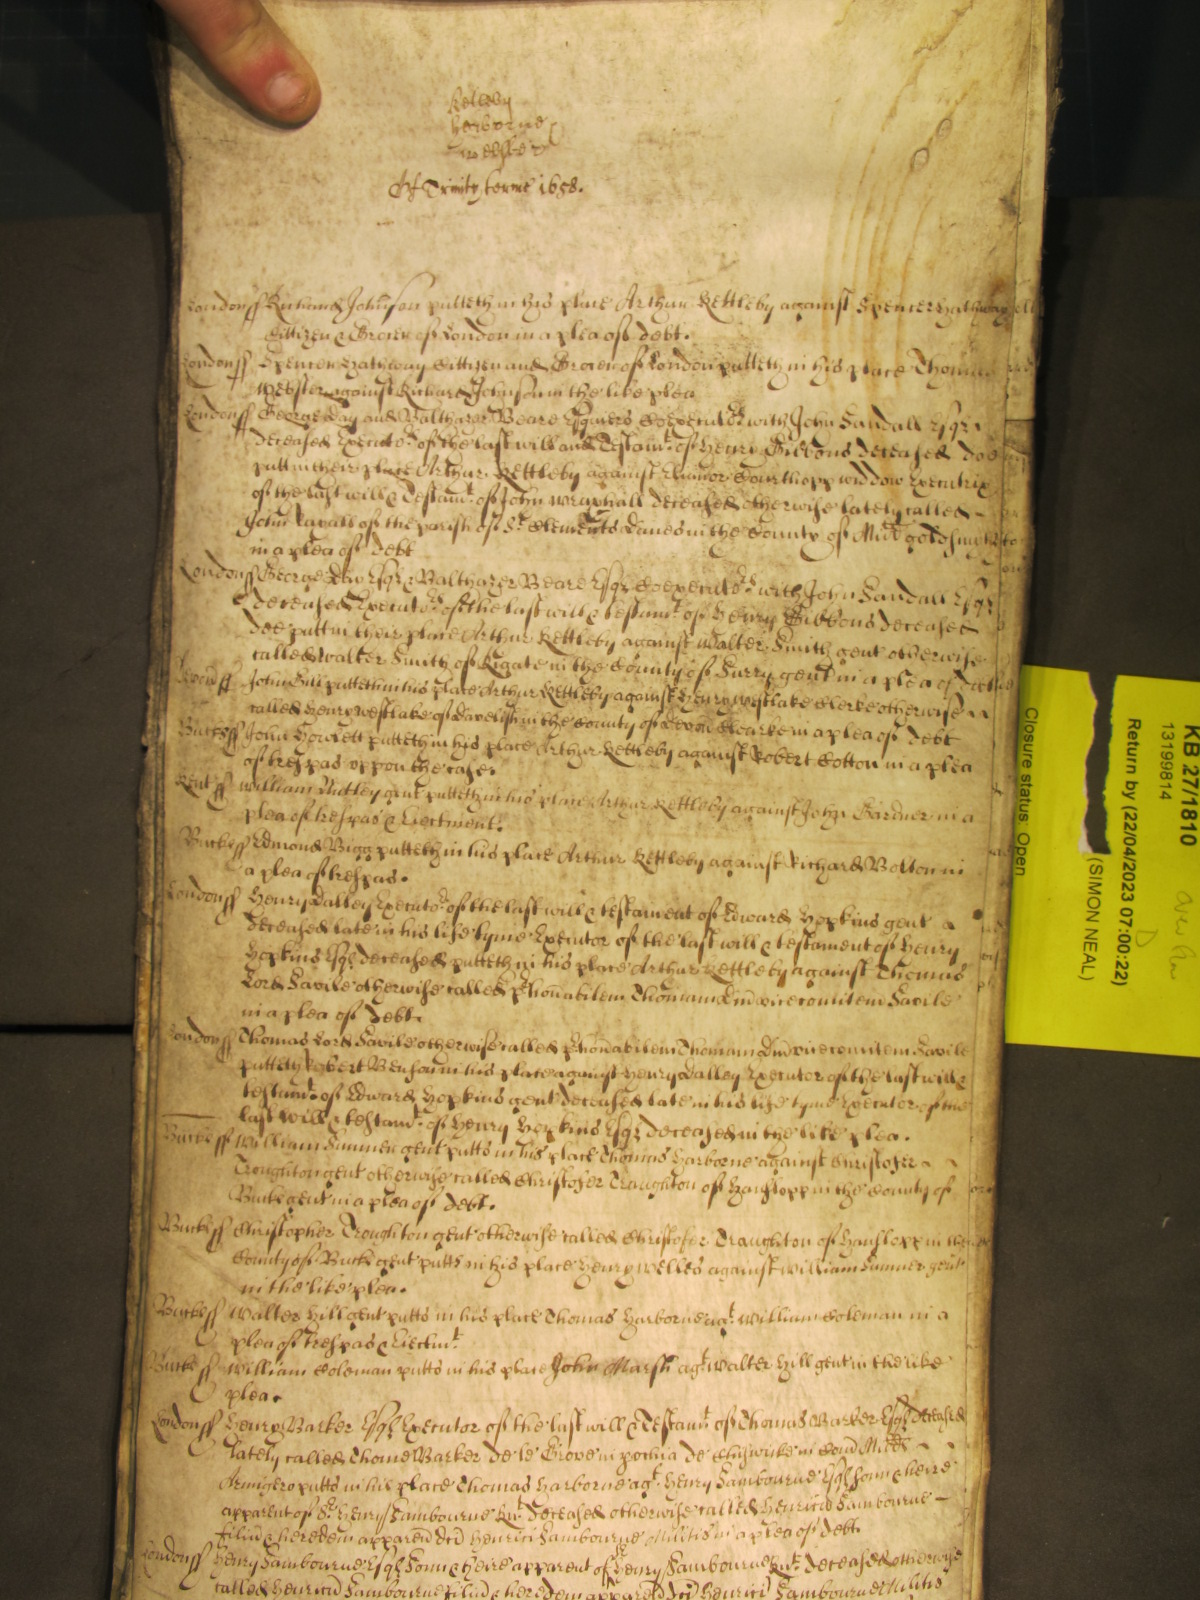 Kettleby
Harborne
Webster
Of Trinity terme 1658.
London ss Richard Johnson putteth in his place Arthur Kettleby against Spencer Hathway
Cittizen & Grocer of London in a plea of debt.
London ss Spencer Hathway Cittizen and Grocer of London putteth in his place Thomas
Webster against Richard Johnson in the like plea
London ss George Day and Balthazar Beare Esquiers Coexecutors with John Sandall Esqr
deceased Executors of the last will and Testamt of Henry Gibbons deceased doe
putt in their place Arthur Kettleby against Elianor Courthopp widdow Executrix
of the last will & Testamt of John Wraxhall deceased otherwise lately called
John of the parish of St Clements Danes in the County of Midd goldsmyth
in a plea of debt
London ss George Day Esqr & Balthazer Beare Esqr Coexecutors with John Sandall Esqr
deceased Executors of the last will & testamt of Henry Gibbons deceased
doe putt in their place Arthur Kettleby against Walter Smith gent otherwise
called Walter Smith of Rigate in the County of Surry gent in a plea of debt
ss John putteth in his place Arthur Kettleby against Henry Westlake Clerke otherwise
called Henry Westlake of in the County of Devon Clearke in a plea of debt
Bucks ss John Howett putteth in his place Arthur Kettleby against Robert Cotton in a plea
of trespas uppon the case.
Kent ss William gent putteth in his place Arthur Kettleby against John Gardner in a
plea of trespas & Eiectment.
Bucks ss Edmond Bigg putteth in his place Arthur Kettleby against Richard Bolton in
a plea of trespas.
London ss Henry Dalley Executor of the last will & testament of Edward Hopkins gent
deceased late in his life tyme Executor of the last will & testament of Henry
Hopkins Esqr deceased putteth in his place Arthur Kettleby against Thomas
Lord Savile otherwise called Thomam vicecomitem Savile
in a plea of debt.
London ss Thomas Lord Savile otherwise called Thomam vicecomitem Savile
putteth Robert Benson in his place against Henry Dalley Executor of the last will &
testamt of Edward Hopkins gent deceased late in his life tyme Executor of the
last will & testamt of Henry Hopkins Esqr deceased in the like plea.
Bucks ss William Sumner gent putts in his place Thomas Harborne against Christofer
Troughton gent otherwise called Christofer Troughton of Hanslopp in the County of
Buck gent in a plea of debt.
Bucks ss Christopher Troughton gent otherwise called Christofer Troughton of Hanslopp in the
County of Buck gent putts in his place Henry Welles against William Sumner gent
in the like plea.
Bucks ss Walter Hill gent putts in his place Thomas Harborne agt William Coleman in a
plea of trespas & Eiectmt
Bucks ss William Coleman putts in his place John Marsh agt Walter Hill gent in the like
plea.
London ss Henry Barker Esqr Executor of the last will & Testamt of Thomas Barker Esqr deceased
lately called Thome Barker de le Grove in pochia de Chiswicke in Com Midds
Armigero putts in his place Thomas Harborne agt Henry Sambourne Esqr sonn & heire
apparent of Sr Henry Sambourne Knt deceased otherwise called Henricu Sambourne
filiu & heredem apparen dci Henrici Sambourne Militis in a plea of debt.
London ss Henry Sambourne Esqr Sonn & heire apparent of Henry Sambourne Knt deceased otherwise
called Henricu Sambourne filiu & heredem apparen dci Henrici Sambourne Militis
KB 27/1810
13199814
Return by (22/04/2023 07:00:22)
(SIMON NEAL)
Closure status: Open